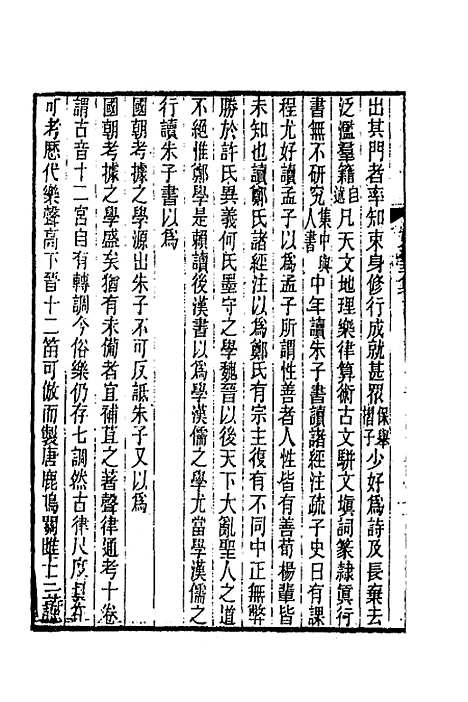 出其門者率知束身修行成就甚眾保舉摺子少好為詩及長棄去
泛濫羣籍自述凡天文地理樂律算術古文駢文塡詞篆隸眞行
書無不研究集中與人書中年讀朱子書讀諸經注疏子史日有課
程尤好讀孟子以為孟子所謂性善者人性皆有善荀楊輩皆
未知也讀鄭氏諸經注以為鄭氏有宗主復有不同中正無弊
勝於許氏異義何氏墨守之學魏晉以後天下大亂聖人之道
不絕惟鄭學是賴讀後漢書以為學漢儒之學尤當學漢儒之
行讀朱子書以為
國朝考據之學源出朱子不可反詆朱子又以為
國朝考據之學盛矣猶有未備者宜補苴之著聲律通考十卷
謂古音十二宮自有轉調今俗樂仍存七調然古律尺度具在
可考歷代樂聲高下晉十二笛可倣而製唐鹿鳴關雎十二詩